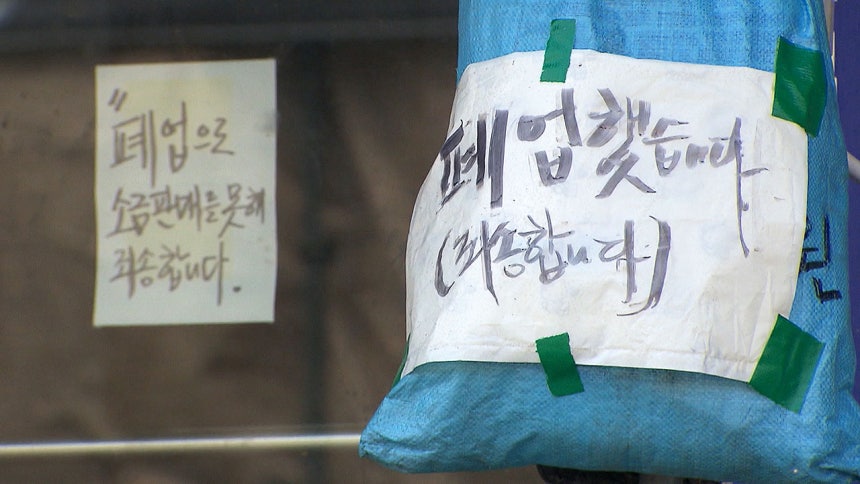 "폐업으로
소금판매를 못해
죄송합니다.
폐업햇습니다
(죄송합니다)